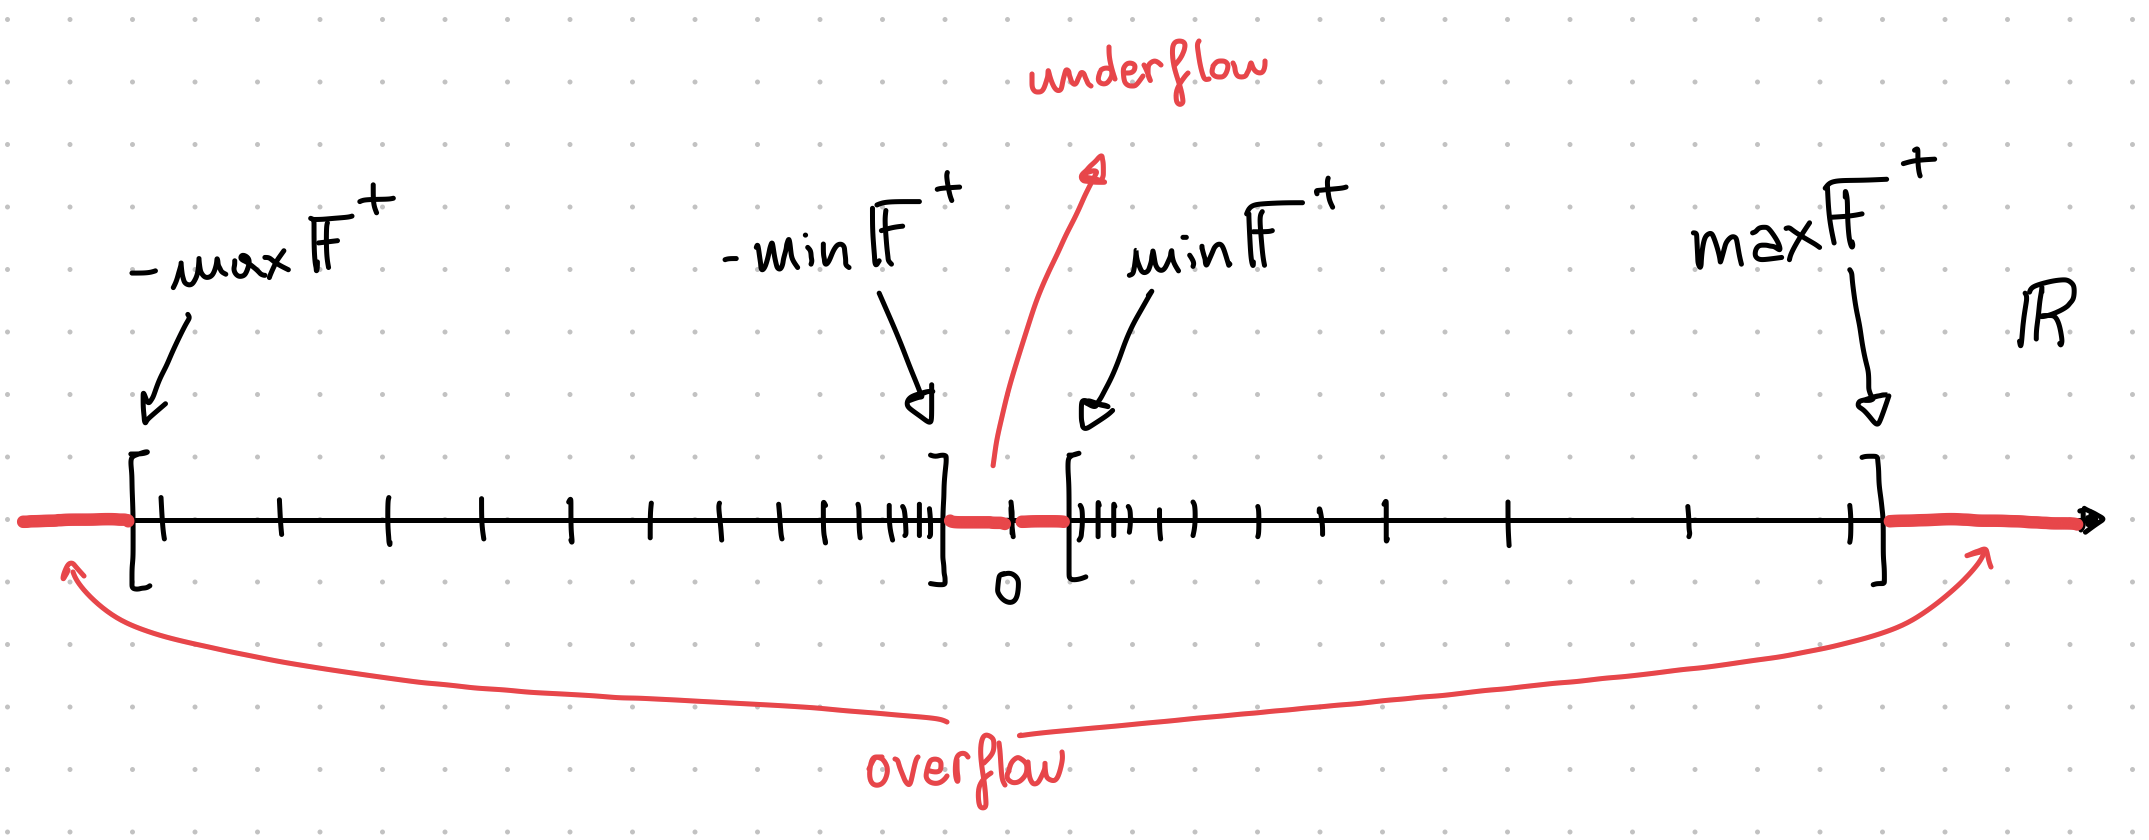 underflow
-max 𝔽⁺
-min 𝔽⁺
min 𝔽⁺
max 𝔽⁺
ℝ
0
overflow